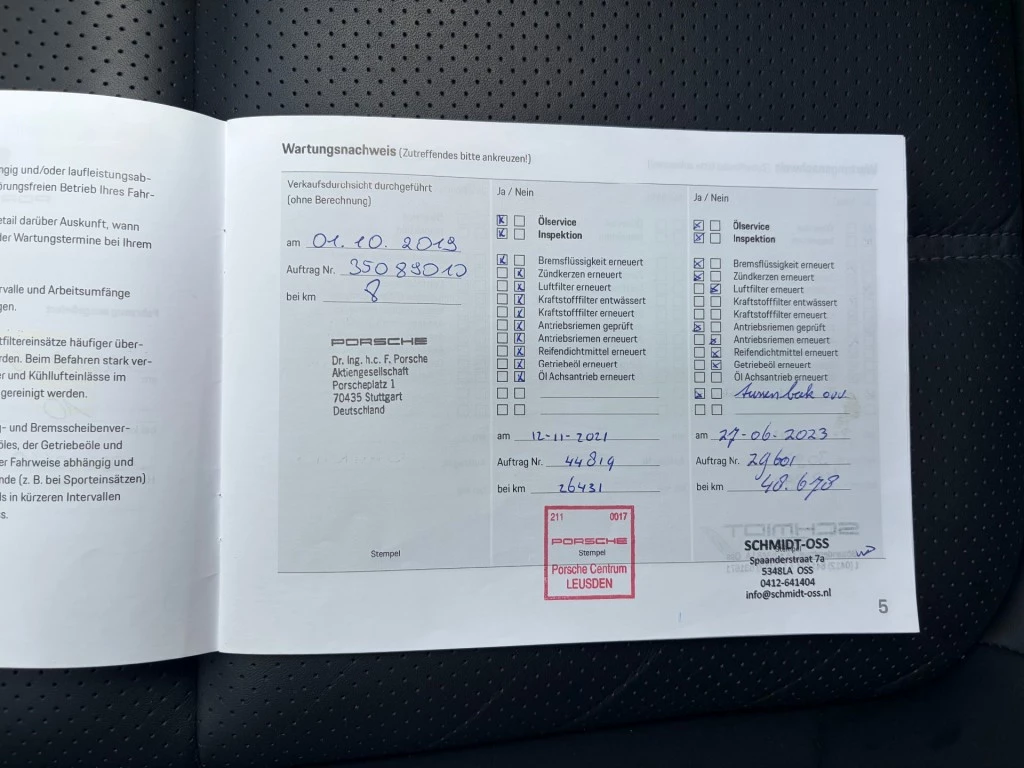 ngig und/oder laufleistungsab-
örungsfreien Betrieb Ihres Fahr-
etail darüber Auskunft, wann
der Wartungstermine bei Ihrem
ervalle und Arbeitsumfänge
gen.
tfiltereinsätze häufiger über-
rden. Beim Befahren stark ver-
er und Kühllufteinlässe im
gereinigt werden.
g- und Bremsscheibenver-
öles, der Getriebeöle und
er Fahrweise abhängig und
nde (z. B. bei Sporteinsätzen)
ls in kürzeren Intervallen
ss.
Wartungsnachweis (Zutreffendes bitte ankreuzen!)
Verkaufsdurchsicht durchgeführt
(ohne Berechnung)
am 01.10.2019
Auftrag Nr. 35089010
bei km 8
PORSCHE
Dr. Ing. h.c. F. Porsche
Aktiengesellschaft
Porscheplatz 1
70435 Stuttgart
Deutschland
Stempel
Ja / Nein
Ölservice
Inspektion
Bremsflüssigkeit erneuert
Zündkerzen erneuert
Luftfilter erneuert
Kraftstofffilter entwässert
Kraftstofffilter erneuert
Antriebsriemen geprüft
Antriebsriemen erneuert
Reifendichtmittel erneuert
Getriebeöl erneuert
Öl Achsantrieb erneuert
am 12-11-2021
Auftrag Nr. 44819
bei km 26431
211 0017
PORSCHE
Stempel
Porsche Centrum
LEUSDEN
Ja / Nein
Ölservice
Inspektion
Bremsflüssigkeit erneuert
Zündkerzen erneuert
Luftfilter erneuert
Kraftstofffilter entwässert
Kraftstofffilter erneuert
Antriebsriemen geprüft
Antriebsriemen erneuert
Reifendichtmittel erneuert
Getriebeöl erneuert
Öl Achsantrieb erneuert
am 27-06-2023
Auftrag Nr. 29601
bei km 48.678
SCHMIDT-OSS
Stempel
Spaanderstraat 7a
5348LA OSS
0412-641404
info@schmidt-oss.nl
5